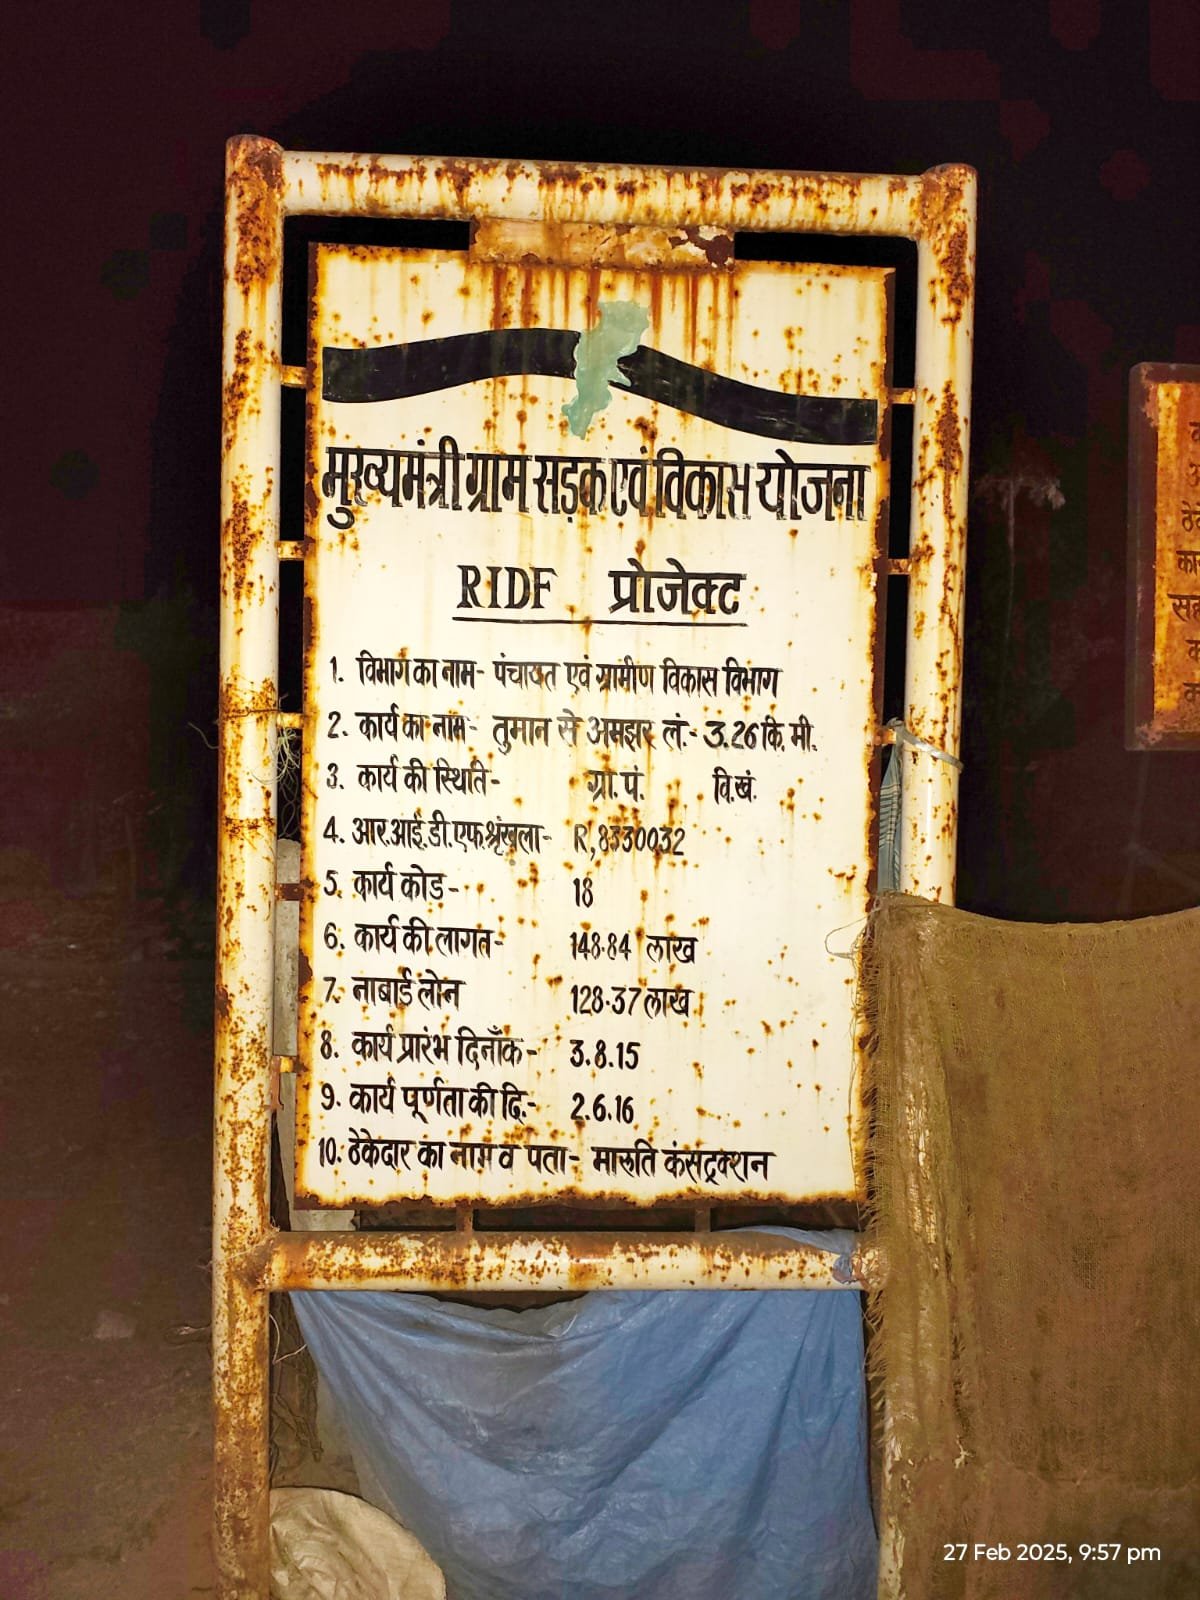 मुख्यमंत्री ग्राम सड़क एवं विकास योजना
RIDF प्रोजेक्ट
1. विभाग का नाम- पंचायत एवं ग्रामीण विकास विभाग
2. कार्य का नाम- तुमान से अमझर लं.- 3.26 कि.मी.
3. कार्य की स्थिति- ग्रा.पं. वि.खं.
4. आर.आई.डी.एफ.श्रृंखला- R,8330032
5. कार्य कोड- 18
6. कार्य की लागत- 148.84 लाख
7. नाबार्ड लोन 128.37 लाख
8. कार्य प्रारंभ दिनाँक- 3.8.15
9. कार्य पूर्णता की दि.- 2.6.16
10. ठेकेदार का नाम व पता- मारुति कंसट्रक्शन
27 Feb 2025, 9:57 pm